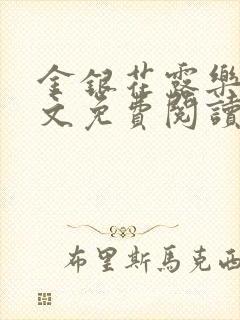 金銀花露樂
文免費閱讀
布里斯馬克西